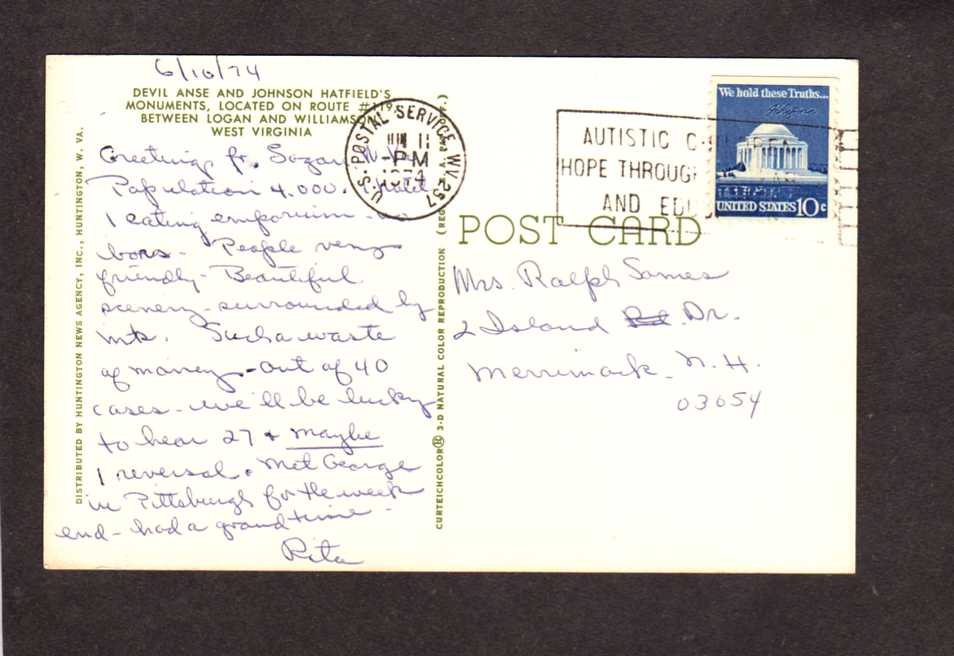 6/10/74
DEVIL ANSE AND JOHNSON HATFIELD'S
MONUMENTS, LOCATED ON ROUTE #119
BETWEEN LOGAN AND WILLIAMSON
WEST VIRGINIA
Greetings fr. Logan W. Va.
Population 4,000.
1 eating emporium -
bars. People very
friendly - Beautiful
scenery - surrounded by
mts. Such a waste
of money - out of 40
cases - we'll be lucky
to hear 27 & maybe
1 reversal. Met George
in Pittsburgh for the week
end - had a grand time -
Rita
DISTRIBUTED BY HUNTINGTON NEWS AGENCY, INC., HUNTINGTON, W. VA.
CURTEICHCOLOR® 3-D NATURAL COLOR REPRODUCTION (REG
U.S. POSTAL SERVICE WV 257
JUN 11
PM
1974
AUTISTIC C
HOPE THROUGH
AND EDU
We hold these Truths...
UNITED STATES 10c
POST CARD
Mrs. Ralph Sames
2 Island Rd. Dr.
Merrimack, N. H.
03054